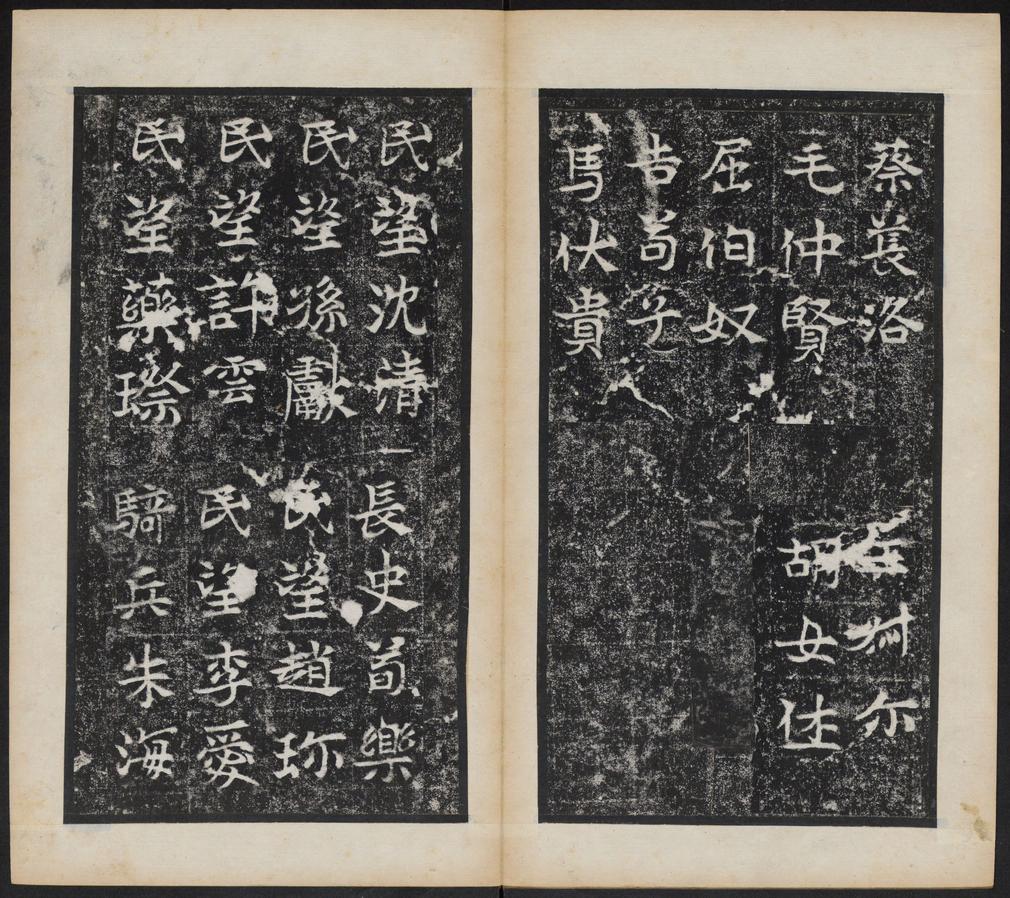 蔡萇洛 尓
毛仲賢 胡女
屈伯奴
苟
馬伏貴
民望沈清 長史苟樂
民望孫獻 民望趙珎
民望許雲 民望李愛
民望藥璨 騎兵朱海